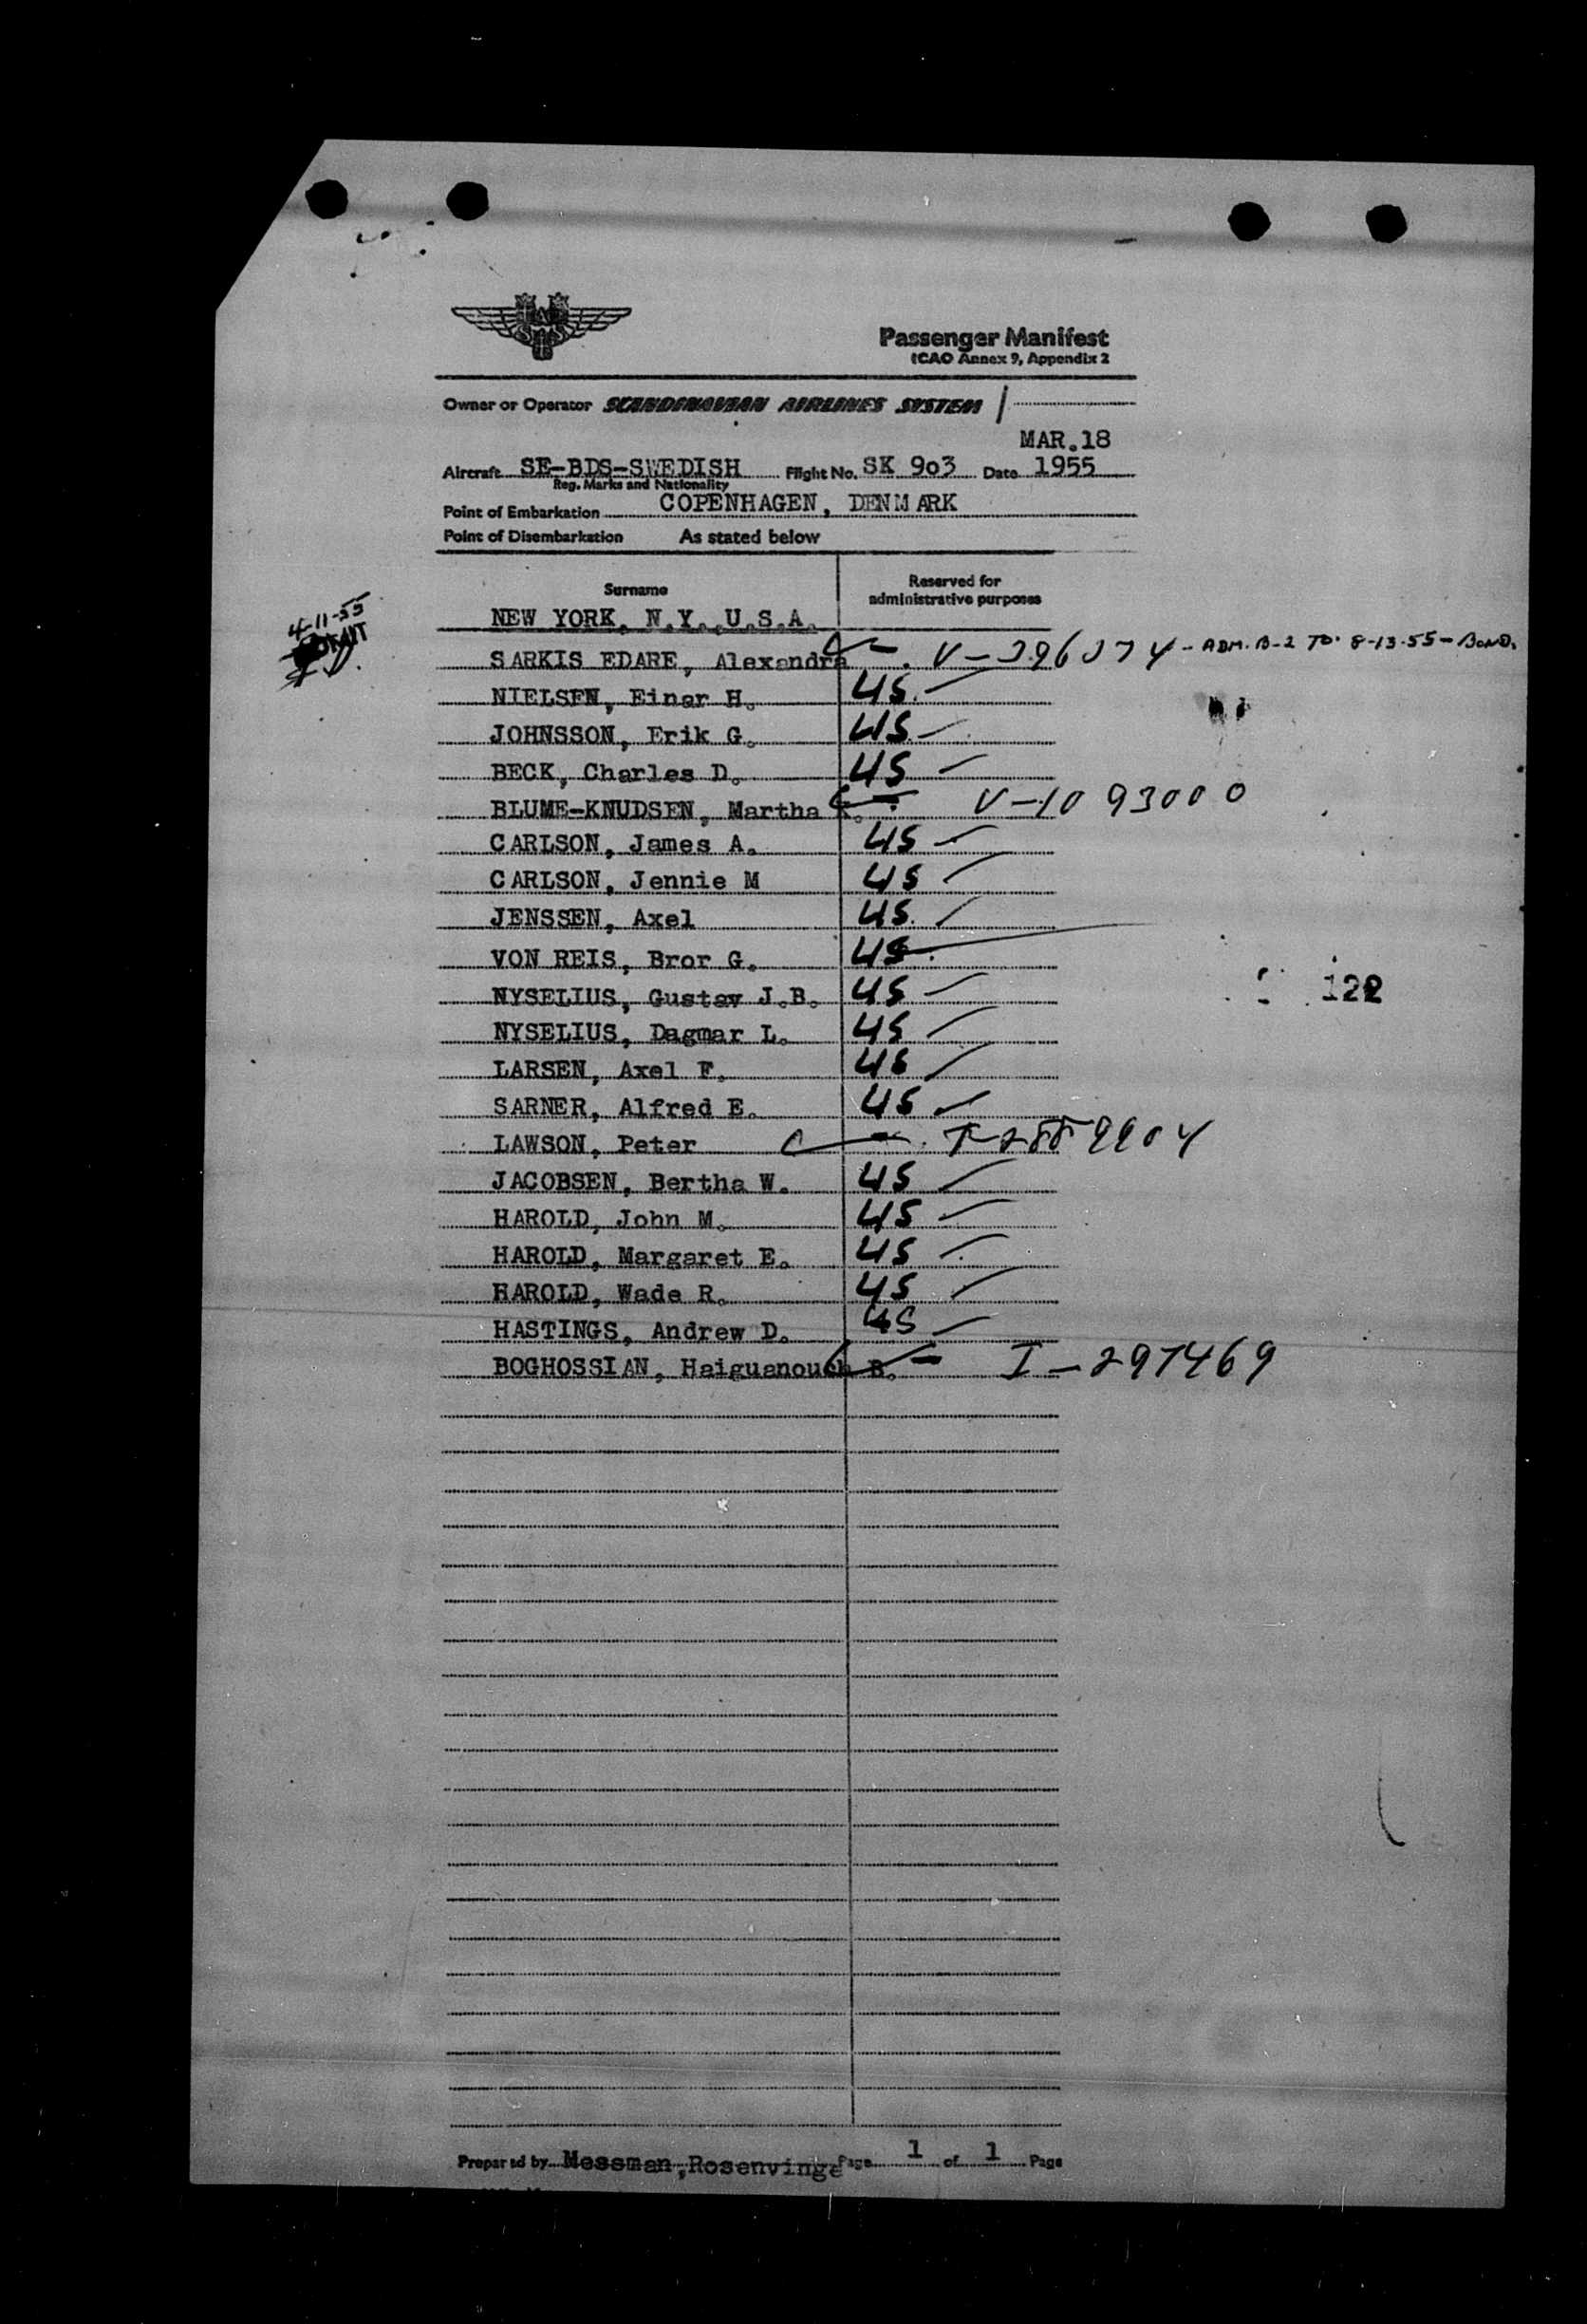 Passenger Manifest
ICAO Annex 9, Appendix 2
Owner or Operator SCANDINAVIAN AIRLINES SYSTEM
MAR.18
Aircraft SE-BDS-SWEDISH Flight No. SK 903 Date 1955
Reg. Marks and Nationality
Point of Embarkation COPENHAGEN, DENMARK
Point of Disembarkation As stated below
Surname Reserved for administrative purposes
4-11-55
NEW YORK, N.Y., U.S.A.
SARKIS EDARE, Alexandra V-396374 - ADM. B-2 TO 8-13-55 - BOND.
NIELSEN, Einar H. US
JOHNSSON, Erik G. US
BECK, Charles D. US
BLUME-KNUDSEN, Martha K. V-1093000
CARLSON, James A. US
CARLSON, Jennie M US
JENSSEN, Axel US
VON REIS, Bror G. US
NYSELIUS, Gustav J.B. US
122
NYSELIUS, Dagmar L. US
LARSEN, Axel F. US
SARNER, Alfred E. US
LAWSON, Peter
JACOBSEN, Bertha W. US
HAROLD, John M. US
HAROLD, Margaret E. US
HAROLD, Wade R. US
HASTINGS, Andrew D. US
BOGHOSSIAN, Haiguanouch B. I-297469
Prepared by Messman, Rosenvinge Page 1 of 1 Page